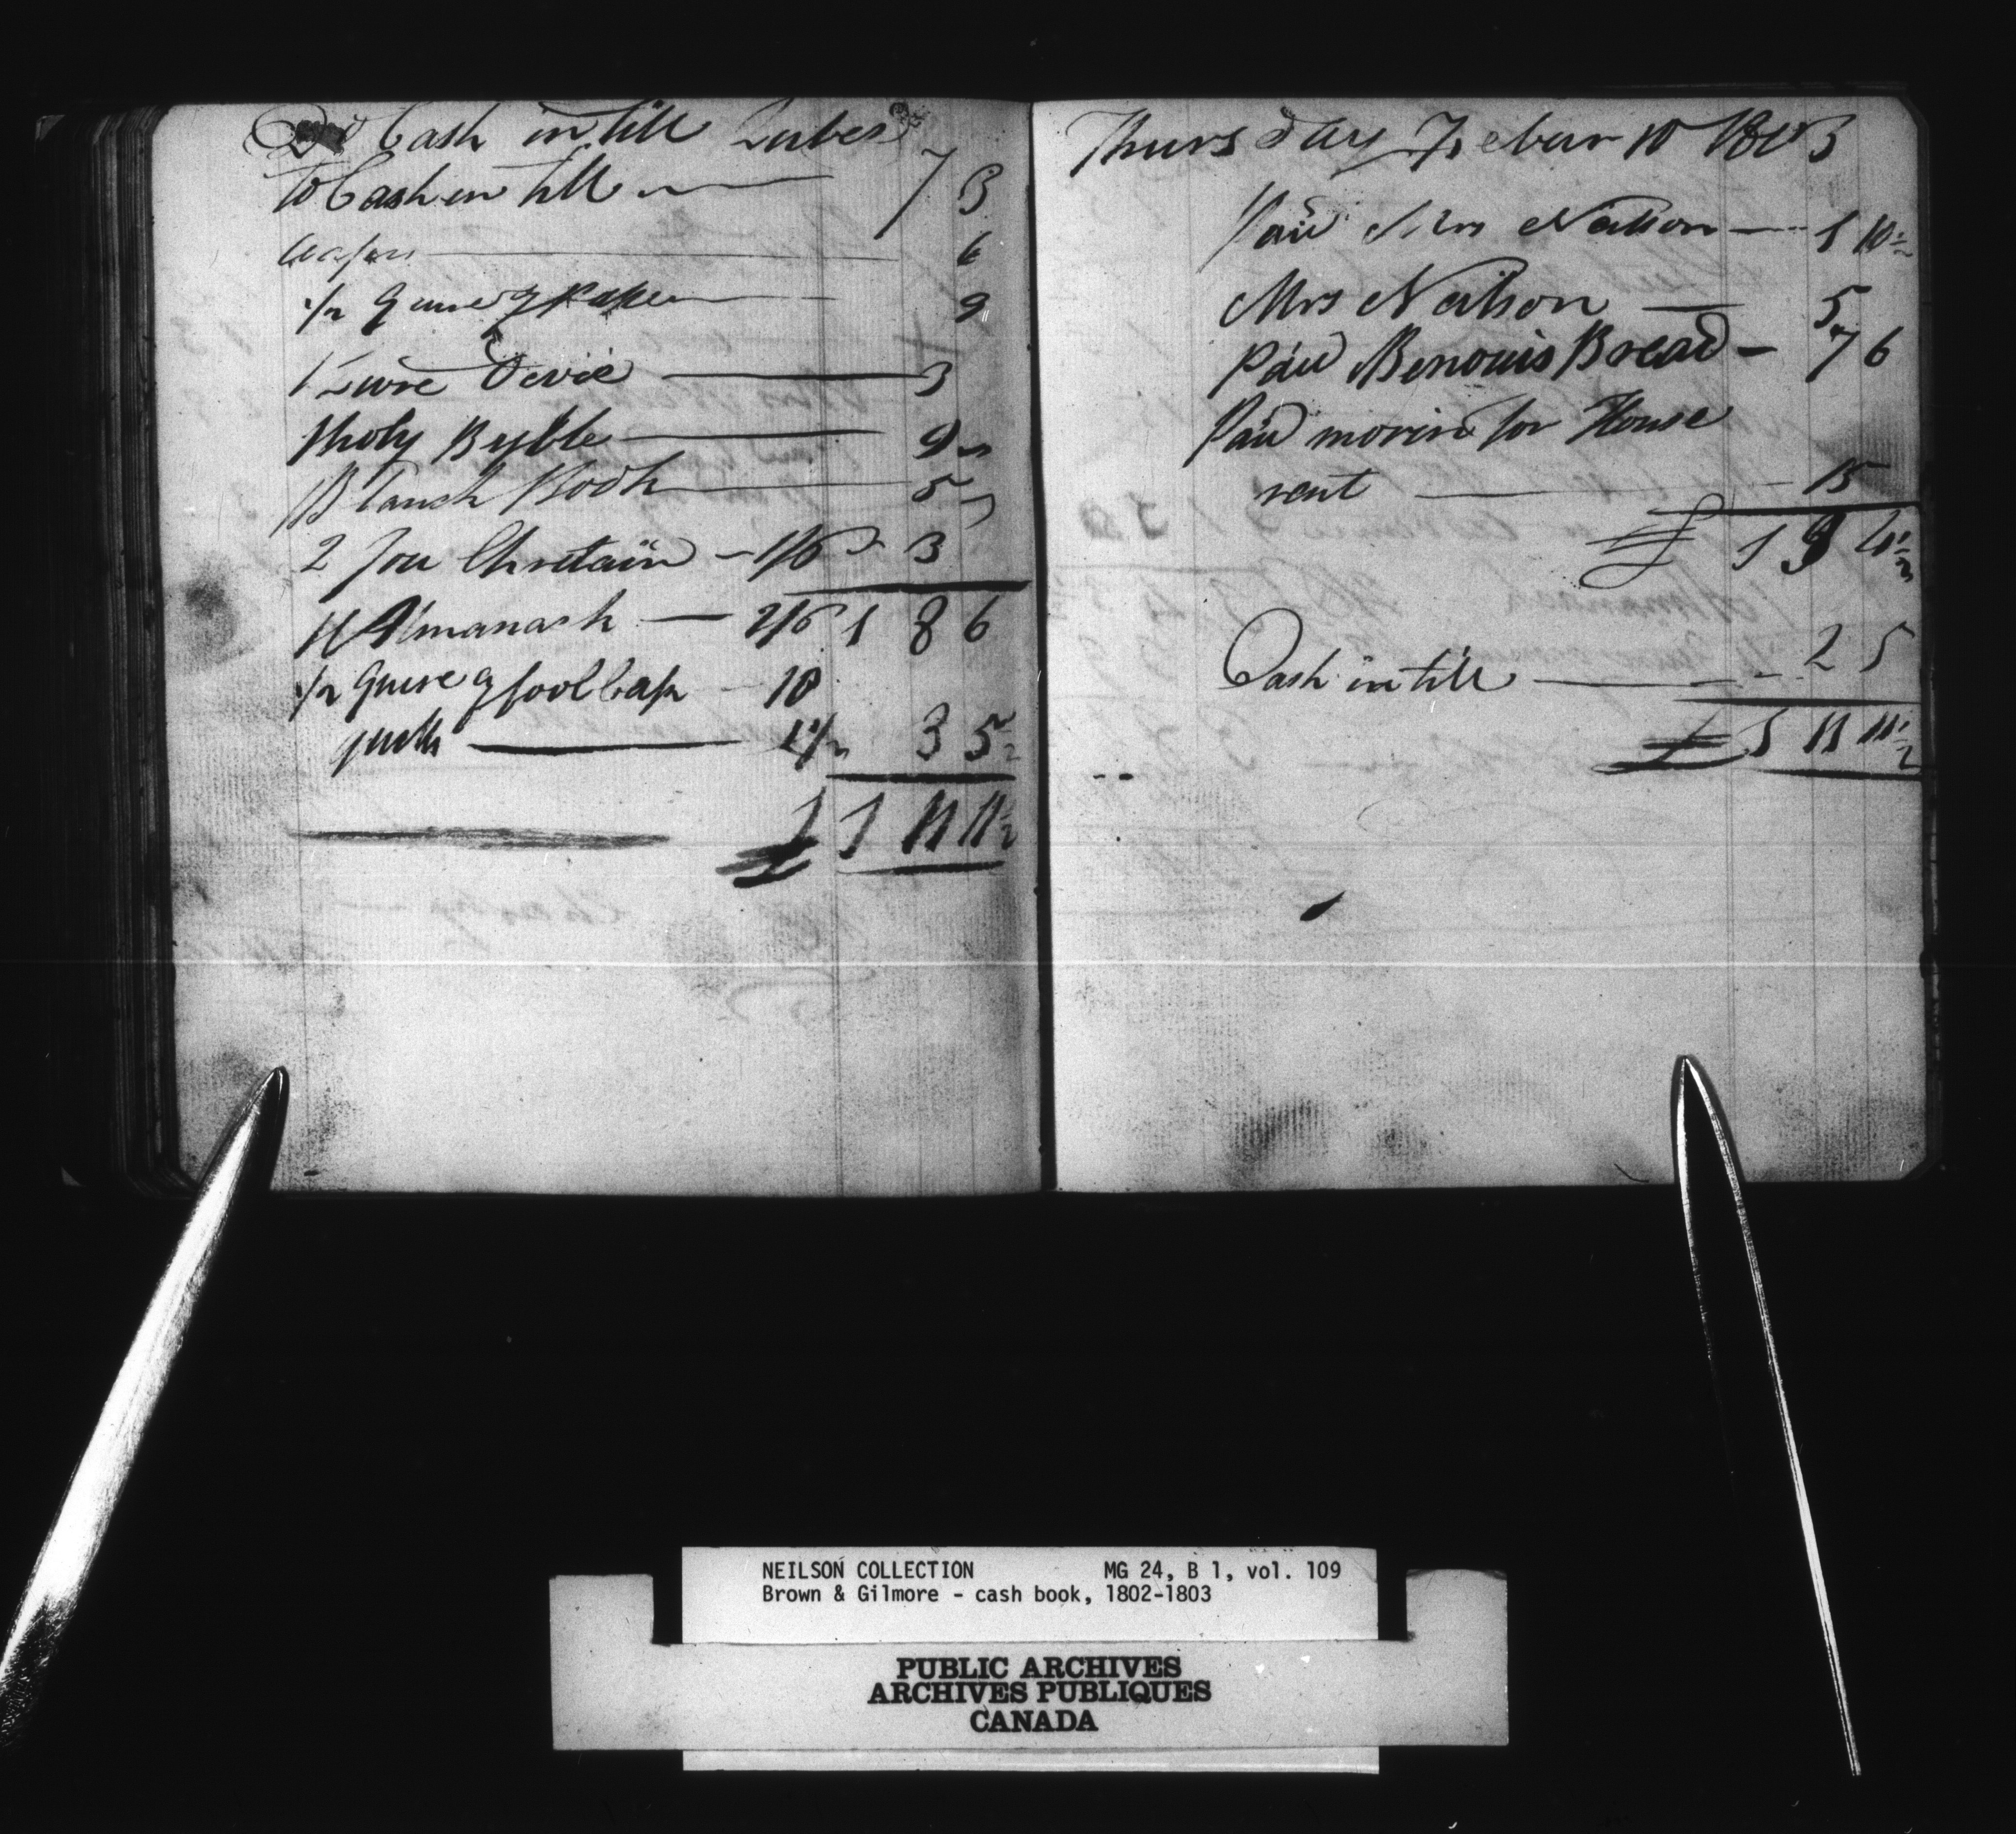 Cash in till Quebec
To Cash in till 7 3
6
1/2 Quire of Paper 9
1 Livre Devie 3
1 holy Byble 9
1 Blanck Book 5
2 Jou Chretain 1/6 3
1 Almanack 2/6 1 8 6
1/2 Quire of fools Cap 10
1 1/2 3 5 1/2
£ 1 11 11 1/2
Thursday Februr 10 1803
Paid Mrs Nailson 1 10 1/2
Mrs Nailson 5
Paid Benouis Bread 7 6
Paid morin for House
rent 15
£ 1 9 4 1/2
Cash in till 2 5
£ 1 11 11 1/2
NEILSON COLLECTION MG 24, B 1, vol. 109
Brown & Gilmore - cash book, 1802-1803
PUBLIC ARCHIVES
ARCHIVES PUBLIQUES
CANADA